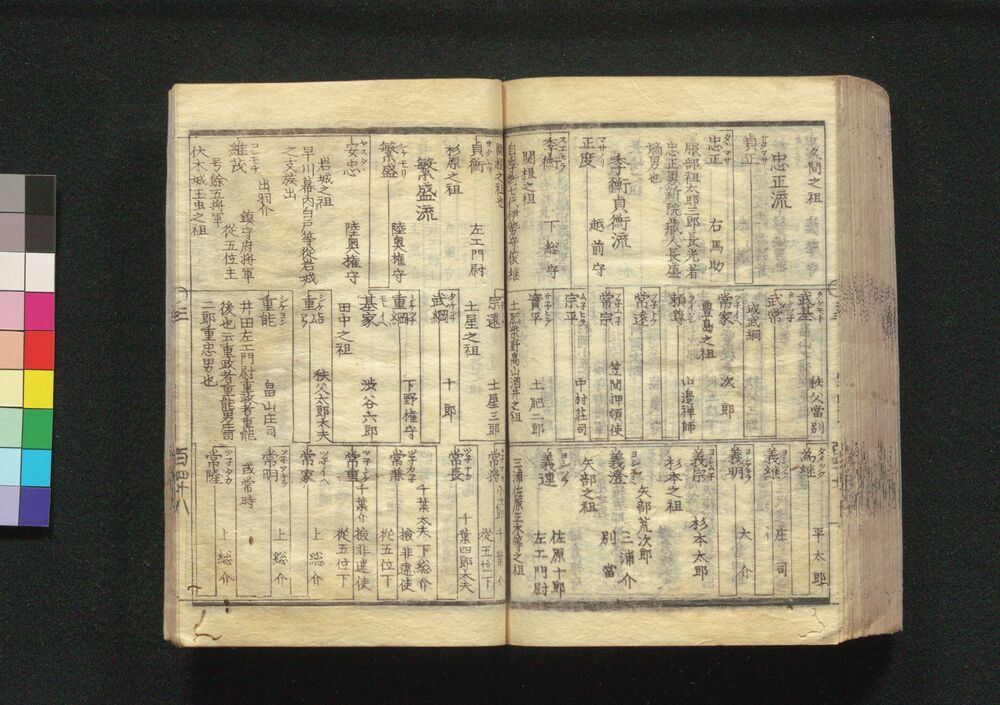 久間之祖
忠正流
貞正
忠正
右馬助
服部祖太郎三郎長光者
忠正男新院蔵人長盛
嫡男也
季衡貞衡流
正度
越前守
季衡
下総守
関根之祖
武基
秩父當別
武常
武綱
常家
次郎
豊島之祖
頼尊
山邉禅師
常遠
常宗
笠間押領使
宗平
中村莊司
實平
土肥二郎
為継
平太郎
義継
庄司
義明
大介
義宗
杉本太郎
杉本之祖
矢部荒次郎
義澄
三浦介
別當
矢部之祖
義連
佐原十郎
左エ門尉
貞衡
左エ門尉
杉原之祖
繁盛流
繁盛
陸奥権守
安忠
陸奥権守
岩城之祖
早川幕内白戸等従岩城
之支族出
出羽介
維茂
鎮守府将軍
従五位上
号餘五将軍
伏木城玉虫之祖
宗遠
土屋三郎
土屋之祖
武綱
十郎
重綱
下野権守
基家
渋谷六郎
田中之祖
重弘
秩父太郎太夫
重能
畠山庄司
井田左エ門尉重政者重能
後也云重政者重能男庄司
二郎重忠男也
千葉介
従五位下
常長
千葉四郎太夫
千葉太夫下総介
常兼
検非違使
従五位下
常重
千葉介
検非違使
従五位下
常家
上総介
常明
上総介
或常時
常隆
上総介
百四十八